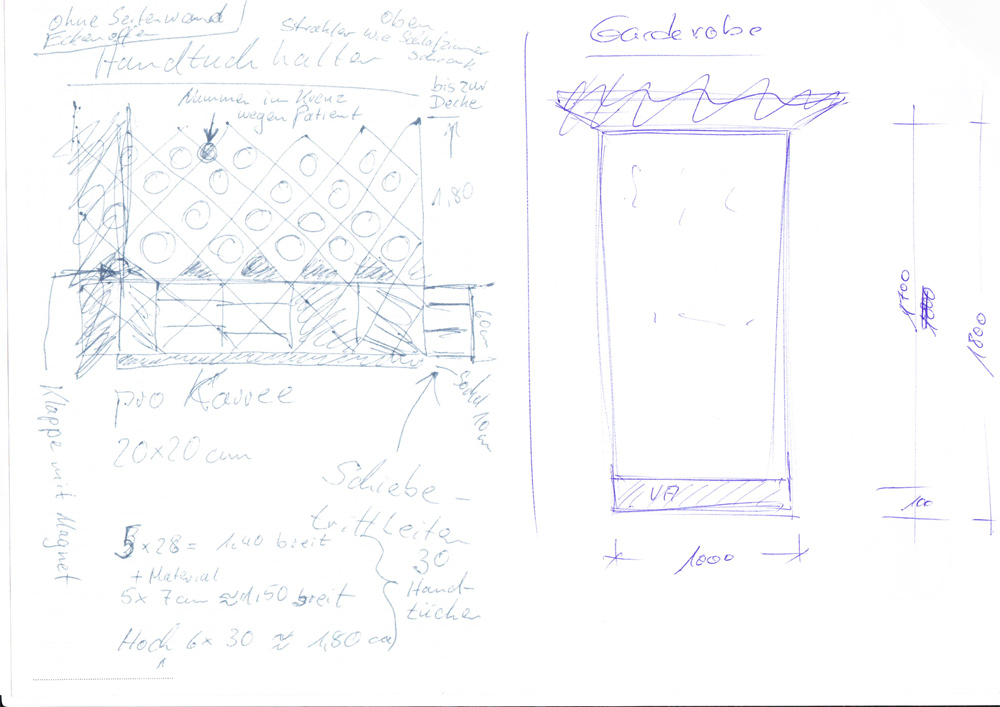 ohne Seitenwand
Ecken offen
Oben
Strahler wie Schlafzimmer
Schrank
Handtuchhalter
bis zur
Decke
Nummer im Kreuz
wegen Patient
1,80
60cm
Sockel 10cm
Klappe mit Magnet
pro Karree
20x20 cm
Schiebe-
trittleiter
5 x 28 = 1,40 breit
+ Material
5 x 7cm ≈ 1,50 breit
Hoch 6 x 30 ≈ 1,80 cm
30
Hand-
tücher
Garderobe
1700
1800
VA
100
1000